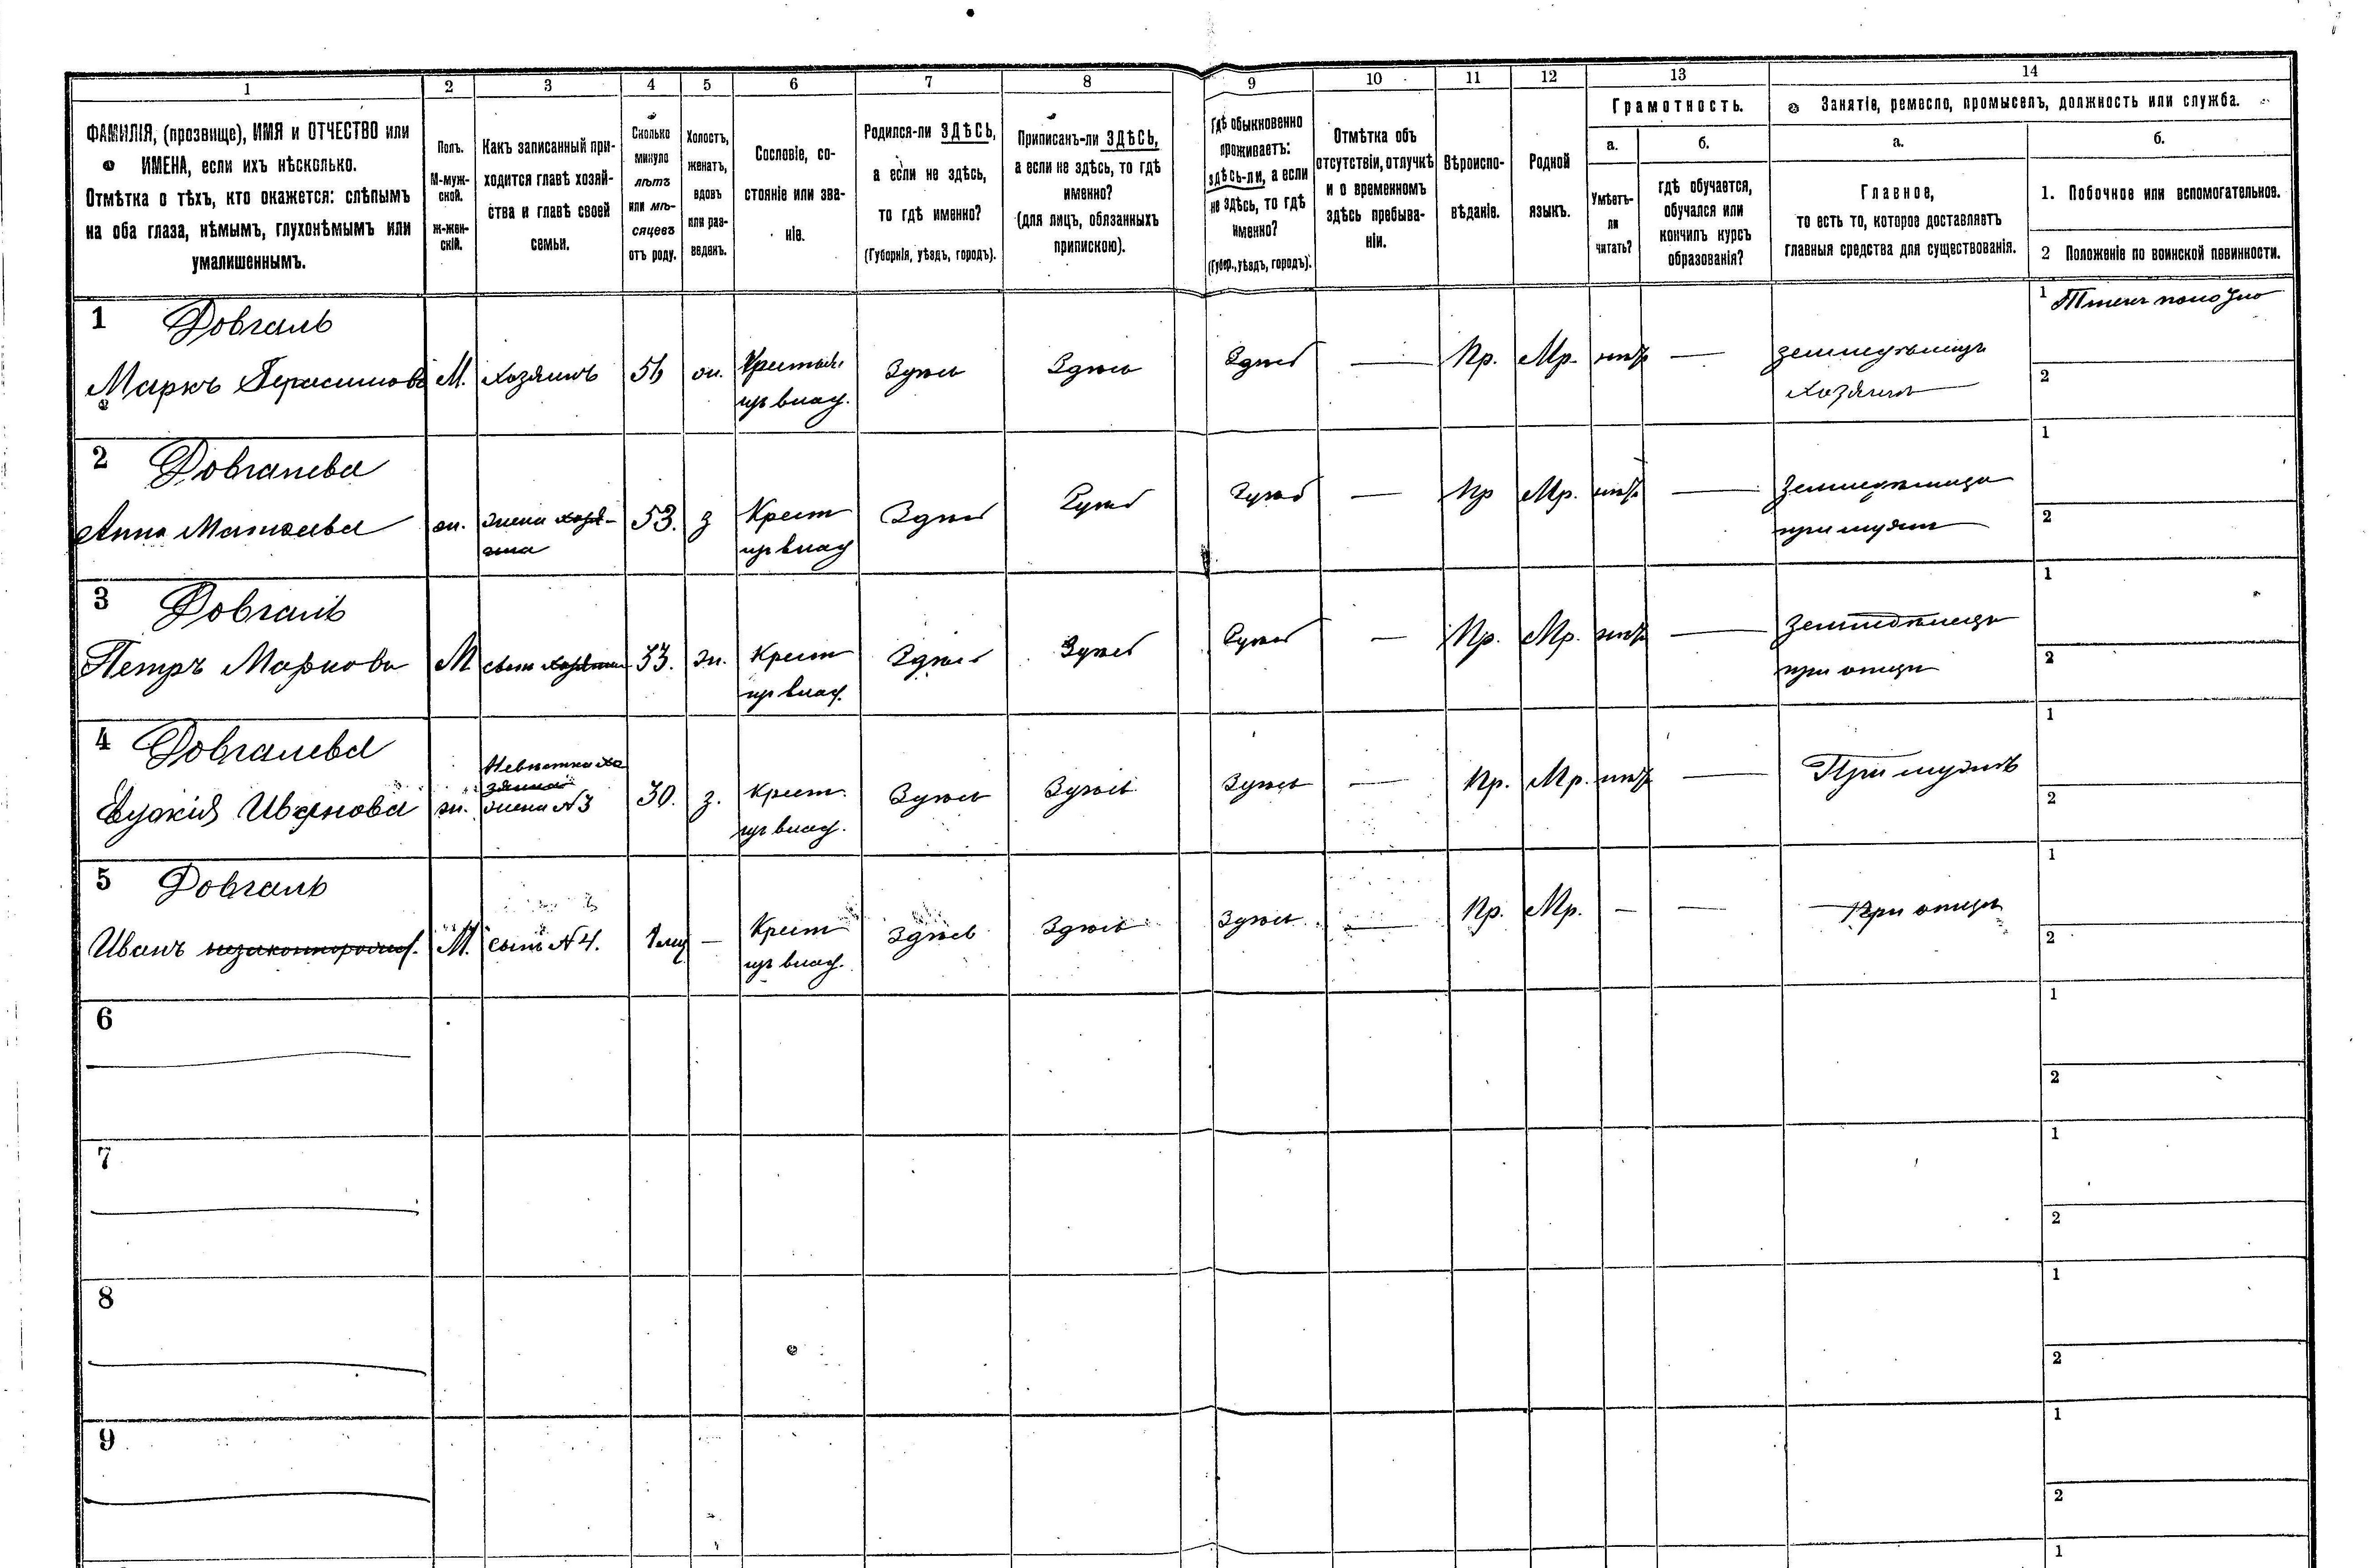 1 2 3 4 5 6 7 8 9 10 11 12 13 14
ФАМИЛІЯ, (прозвище), ИМЯ и ОТЧЕСТВО или
ИМЕНА, если ихъ нѣсколько.
Отмѣтка о тѣхъ, кто окажется: слѣпымъ
на оба глаза, нѣмымъ, глухонѣмымъ или
умалишеннымъ.
Полъ.
М-муж-
ской.
ж-жен-
скій.
Какъ записанный при-
ходится главѣ хозяй-
ства и главѣ своей
семьи.
Сколько
минуло
лѣтъ
или мѣ-
сяцевъ
отъ роду.
Холостъ,
женатъ,
вдовъ
или раз-
веденъ.
Сословіе, со-
стояніе или зва-
ніе.
Родился-ли ЗДѢСЬ,
а если не здѣсь,
то гдѣ именно?
(Губернія, уѣздъ, городъ).
Приписанъ-ли ЗДѢСЬ,
а если не здѣсь, то гдѣ
именно?
(для лицъ, обязанныхъ
припискою).
Гдѣ обыкновенно
проживаетъ:
здѣсь-ли, а если
не здѣсь, то гдѣ
именно?
(Губер., уѣздъ, городъ).
Отмѣтка объ
отсутствіи, отлучкѣ
и о временномъ
здѣсь пребыва-
ніи.
Вѣроиспо-
вѣданіе.
Родной
языкъ.
Грамотность.
а.
Умѣетъ-
ли
читать?
б.
гдѣ обучается,
обучался или
кончилъ курсъ
образованія?
Занятіе, ремесло, промыселъ, должность или служба.
а.
Главное,
то есть то, которое доставляетъ
главныя средства для существованія.
б.
1. Побочное или вспомогательное.
2 Положеніе по воинской повинности.
1 Довгаль
Маркъ Герасимовъ М. Хозяинъ Здѣсь Здѣсь Здѣсь — Пр. Мр. нѣтъ — земледѣлецъ
хозяинъ
1
2
2 Довгалева
Анна Матвеева жена хозя-
ина 53. з Крест Здѣсь Здѣсь Здѣсь — Пр Мр. нѣтъ —
при мужѣ
1
2
3 Довгаль
Петръ Марковъ М сынъ хозяина 33. ж. Крест Здѣсь Здѣсь Здѣсь — Пр. Мр. нѣтъ — земледѣлецъ
при отцѣ
1
2
4 Довгалева
Евдокія Иванова ж. Невѣстка хо
зяина
жена №3 30. з. Крест. Здѣсь Здѣсь Здѣсь — Пр. Мр. нѣтъ — При мужѣ
1
2
5 Довгаль
Иванъ незаконнорожд. М. сынъ №4. — Крест Здѣсь Здѣсь Здѣсь — Пр. Мр. — — При отцѣ
1
2
6
1
2
7
1
2
8
1
2
9
1
2
1